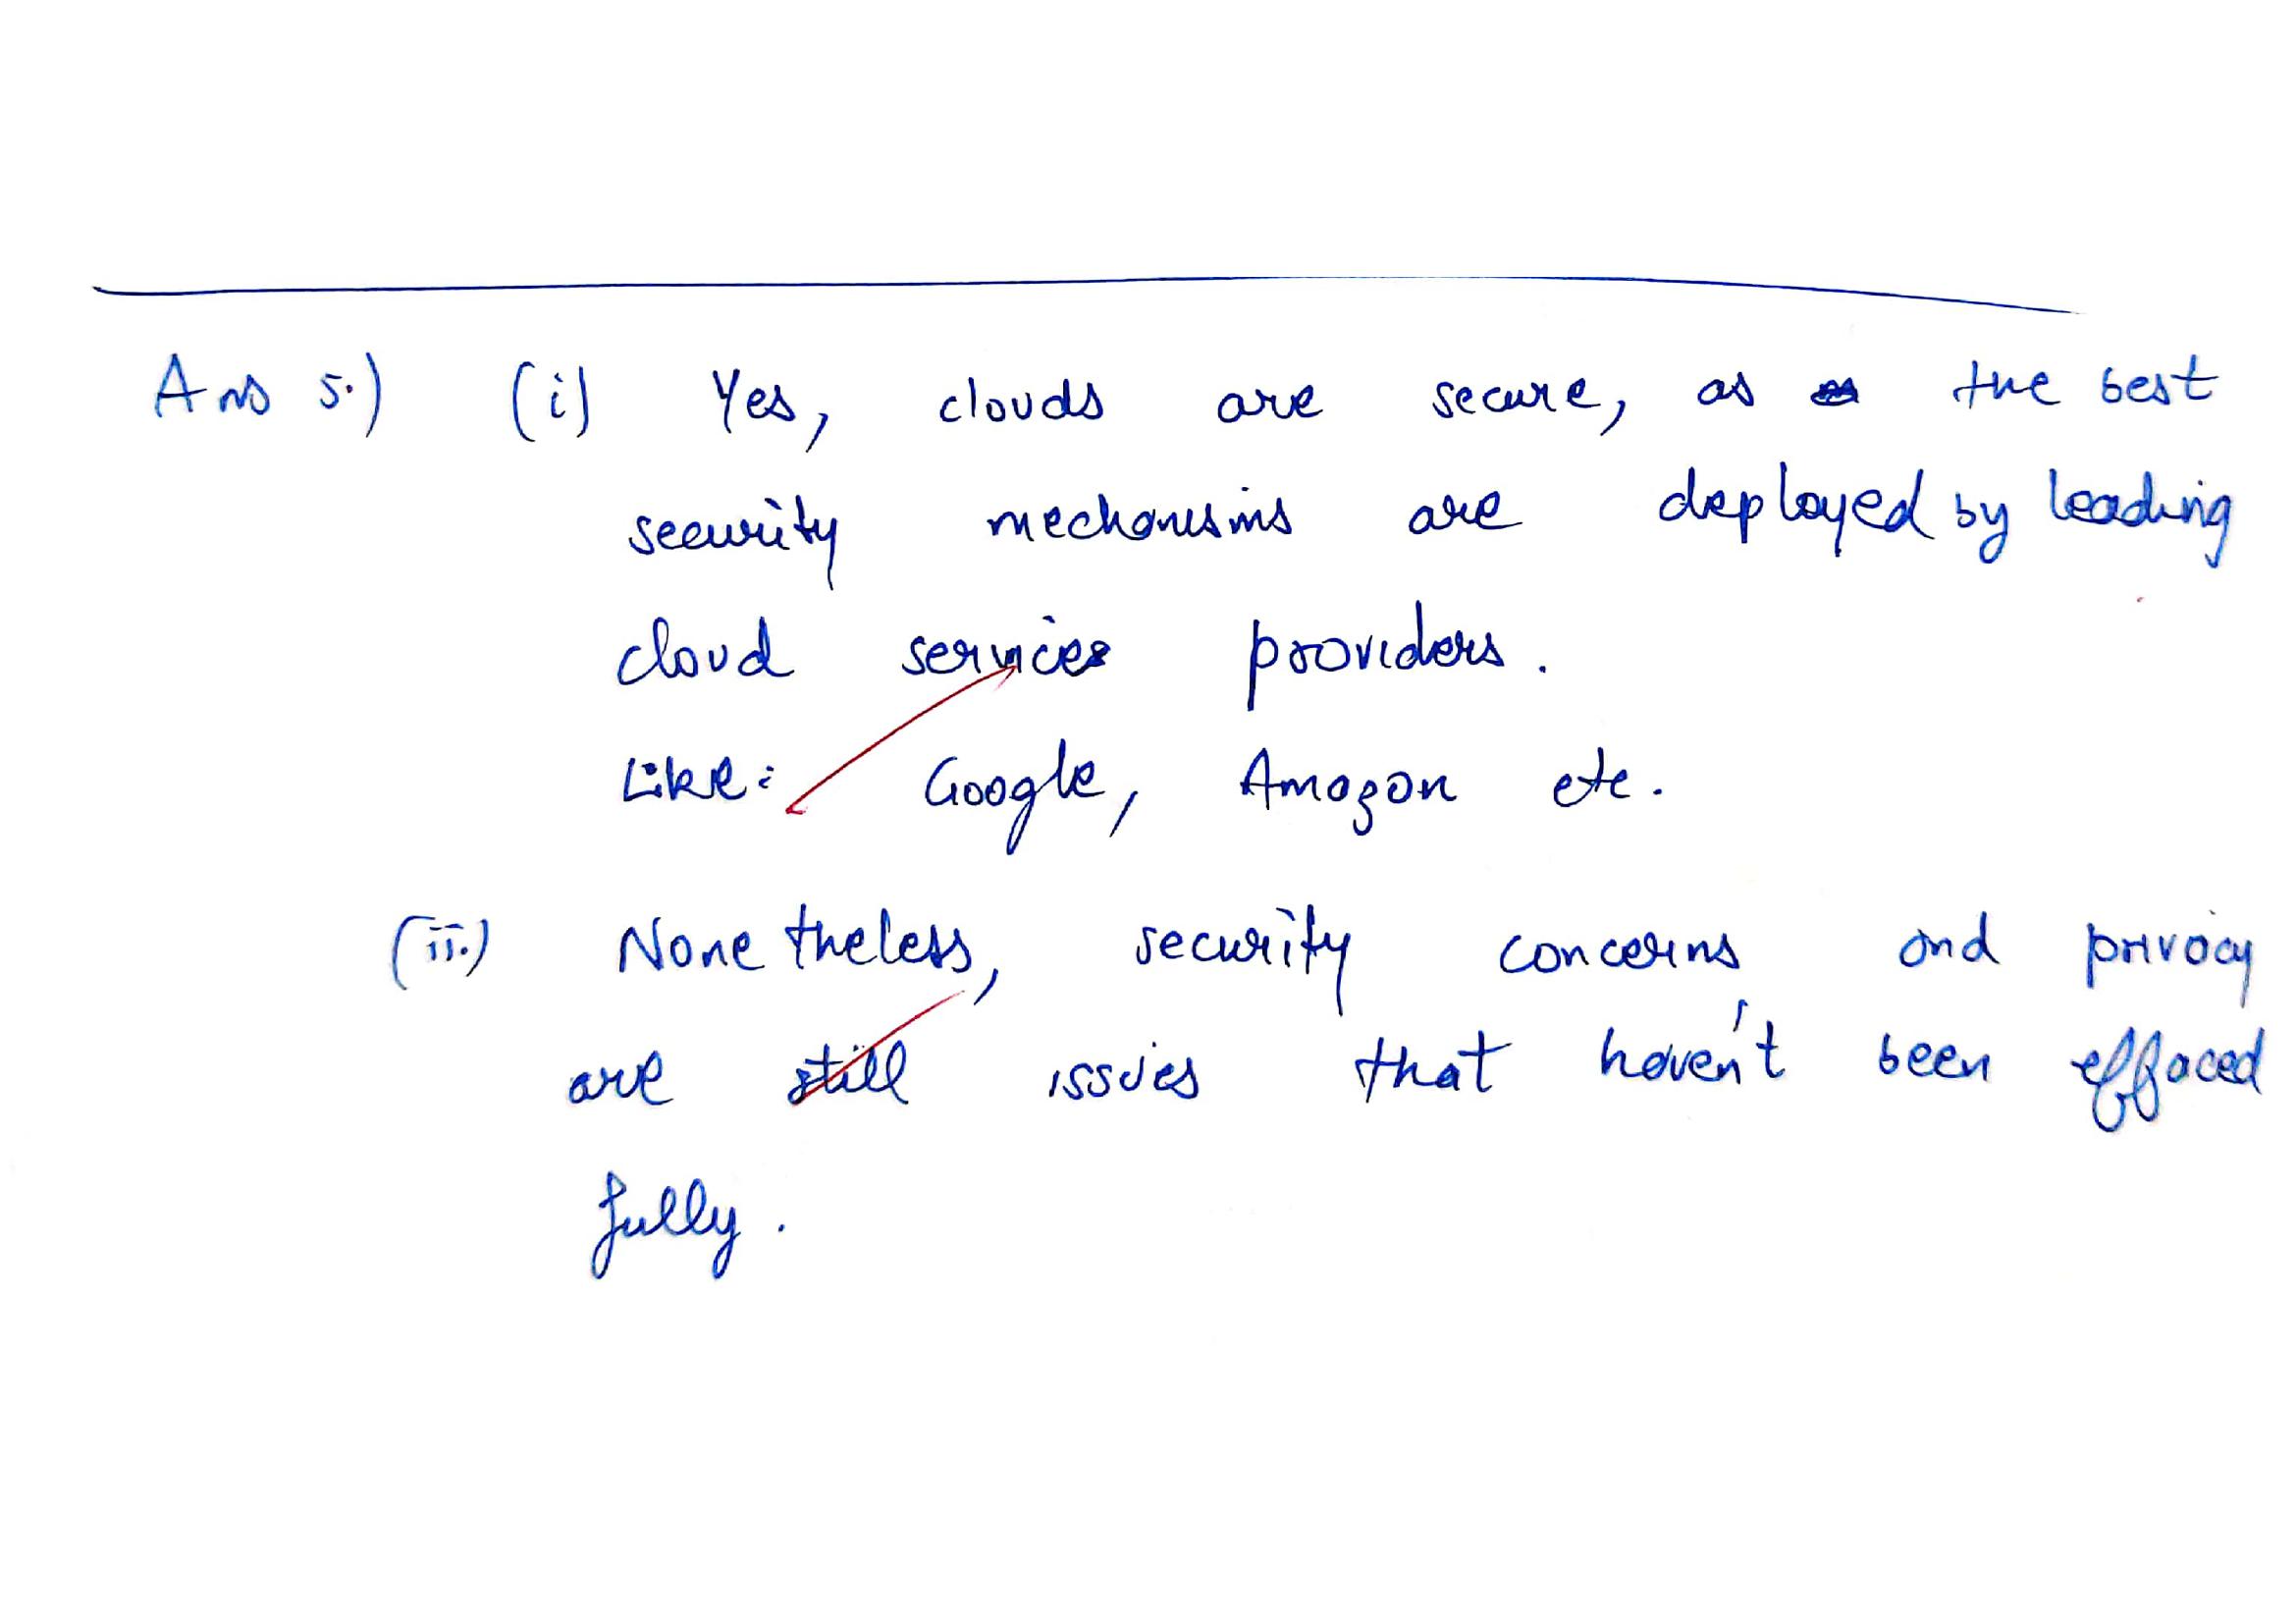 Ans 5.) (i) Yes, clouds are secure, as the best
security mechanisms are deployed by leading
cloud service providers.
Like: Google, Amazon etc.
(ii.) Nonetheless, security concerns and privacy
are still issues that haven't been effaced
fully.